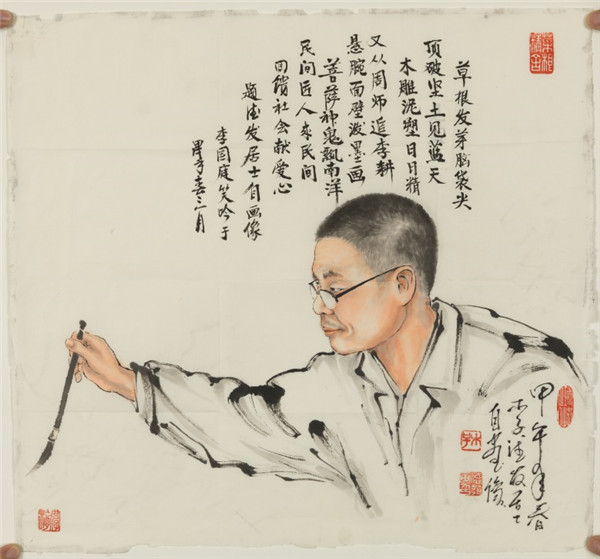 草根发芽脑袋尖
顶破坚土见蓝天
木雕泥塑日日精
又从周师追李耕
悬腕面壁泼墨画
菩萨神鬼飘南洋
民间匠人来民间
回馈社会献爱心
题德发居士自画像
李国庭笑吟于
甲午春三月
甲午年春
木子德发居士
自画像